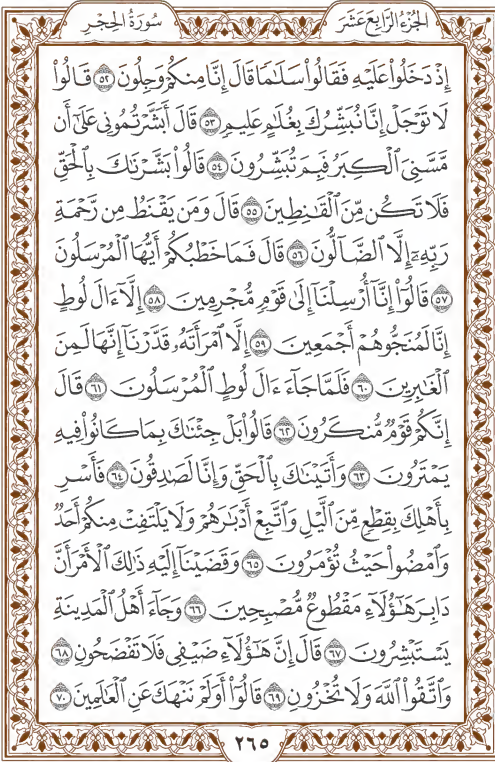 الجُزءُ الرَّابِعَ عَشَرَ سُورَةُ الحِجْرِ
إِذْ دَخَلُواْ عَلَيْهِ فَقَالُواْ سَلَٰمًا قَالَ إِنَّا مِنكُمْ وَجِلُونَ ٥٢ قَالُواْ
لَا تَوْجَلْ إِنَّا نُبَشِّرُكَ بِغُلَٰمٍ عَلِيمٍ ٥٣ قَالَ أَبَشَّرْتُمُونِي عَلَىٰٓ أَن
مَّسَّنِيَ ٱلْكِبَرُ فَبِمَ تُبَشِّرُونَ ٥٤ قَالُواْ بَشَّرْنَٰكَ بِٱلْحَقِّ
فَلَا تَكُن مِّنَ ٱلْقَٰنِطِينَ ٥٥ قَالَ وَمَن يَقْنَطُ مِن رَّحْمَةِ
رَبِّهِۦٓ إِلَّا ٱلضَّآلُّونَ ٥٦ قَالَ فَمَا خَطْبُكُمْ أَيُّهَا ٱلْمُرْسَلُونَ
٥٧ قَالُوٓاْ إِنَّآ أُرْسِلْنَآ إِلَىٰ قَوْمٍ مُّجْرِمِينَ ٥٨ إِلَّآ ءَالَ لُوطٍ
إِنَّا لَمُنَجُّوهُمْ أَجْمَعِينَ ٥٩ إِلَّا ٱمْرَأَتَهُۥ قَدَّرْنَآ إِنَّهَا لَمِنَ
ٱلْغَٰبِرِينَ ٦٠ فَلَمَّا جَآءَ ءَالَ لُوطٍ ٱلْمُرْسَلُونَ ٦١ قَالَ
إِنَّكُمْ قَوْمٌ مُّنكَرُونَ ٦٢ قَالُواْ بَلْ جِئْنَٰكَ بِمَا كَانُواْ فِيهِ
يَمْتَرُونَ ٦٣ وَأَتَيْنَٰكَ بِٱلْحَقِّ وَإِنَّا لَصَٰدِقُونَ ٦٤ فَأَسْرِ
بِأَهْلِكَ بِقِطْعٍ مِّنَ ٱلَّيْلِ وَٱتَّبِعْ أَدْبَٰرَهُمْ وَلَا يَلْتَفِتْ مِنكُمْ أَحَدٌ
وَٱمْضُواْ حَيْثُ تُؤْمَرُونَ ٦٥ وَقَضَيْنَآ إِلَيْهِ ذَٰلِكَ ٱلْأَمْرَ أَنَّ
دَابِرَ هَٰٓؤُلَآءِ مَقْطُوعٌ مُّصْبِحِينَ ٦٦ وَجَآءَ أَهْلُ ٱلْمَدِينَةِ
يَسْتَبْشِرُونَ ٦٧ قَالَ إِنَّ هَٰٓؤُلَآءِ ضَيْفِي فَلَا تَفْضَحُونِ ٦٨
وَٱتَّقُواْ ٱللَّهَ وَلَا تُخْزُونِ ٦٩ قَالُوٓاْ أَوَلَمْ نَنْهَكَ عَنِ ٱلْعَٰلَمِينَ ٧٠
٢٦٥